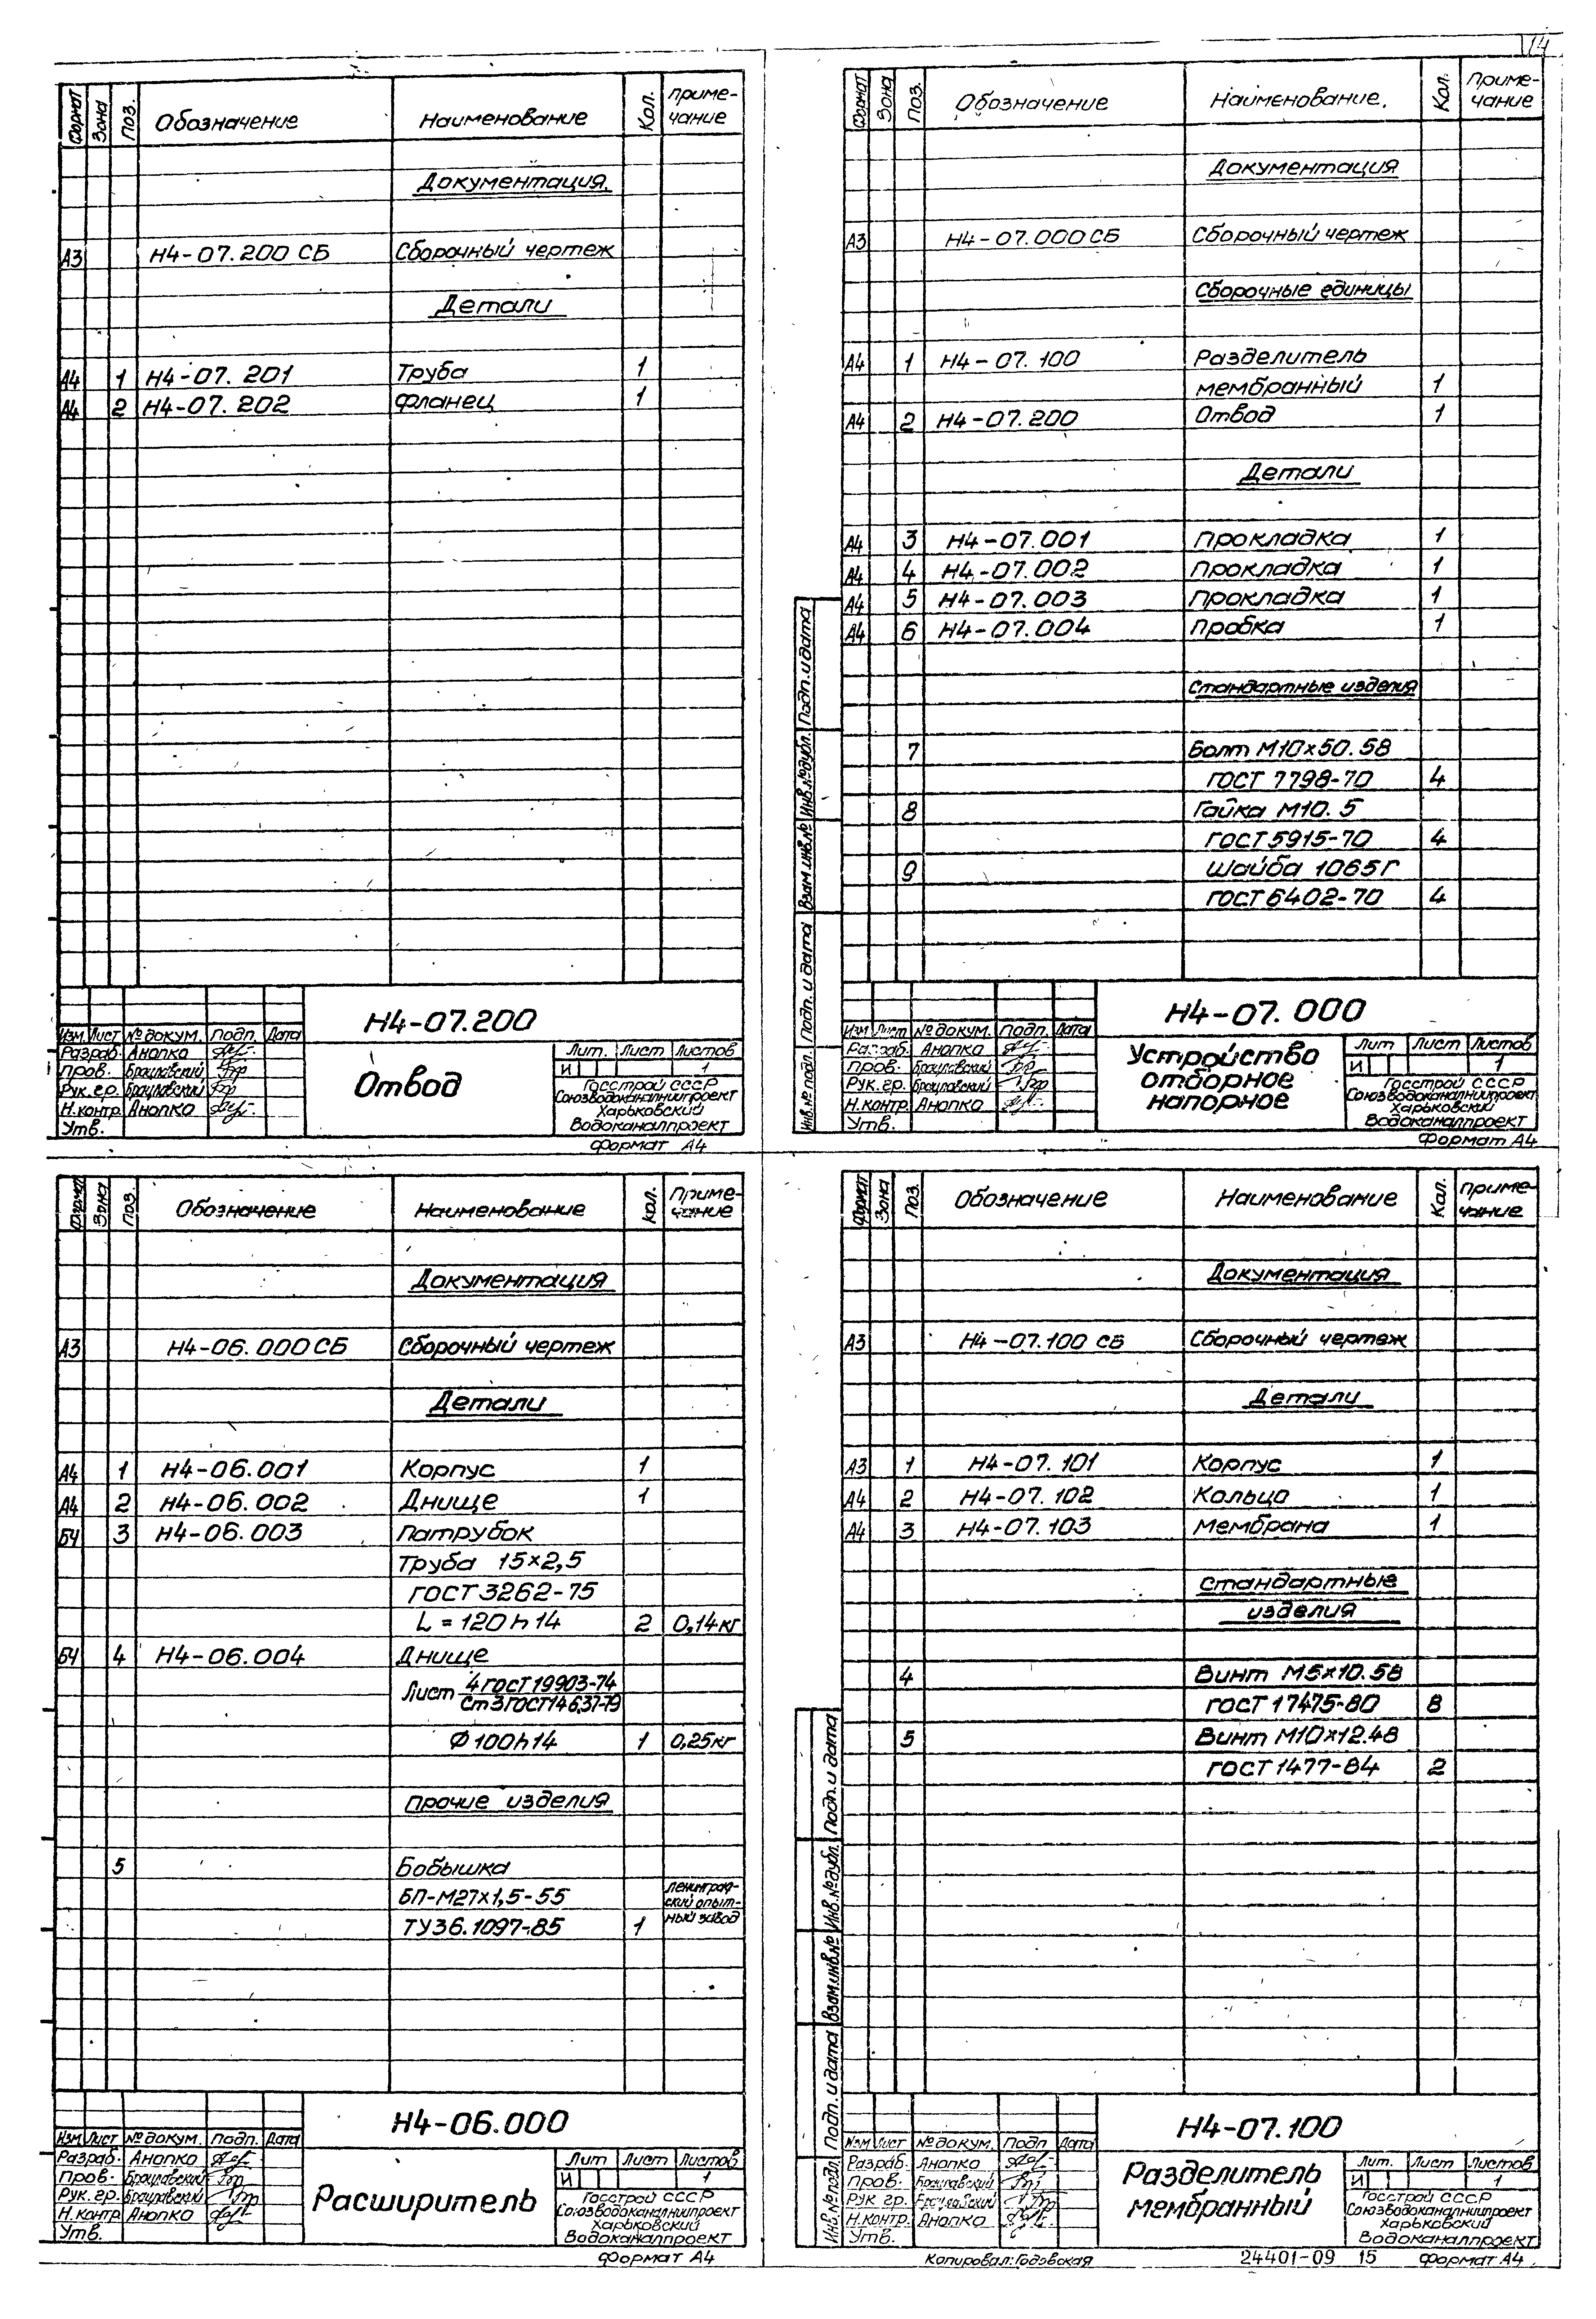 14
Формат Зона Поз. Обозначение Наименование Кол. Приме-
чание
Документация
А3 Н4-07.200 СБ Сборочный чертеж
Детали
А4 1 Н4-07.201 Труба 1
А4 2 Н4-07.202 Фланец 1
Н4-07.200
Изм. Лист № докум. Подп. Дата
Разраб. Анопко
Пров. Брацлавский
Рук. гр. Брацлавский
Н.контр. Анопко
Утв.
Отвод
Лит. Лист Листов
И 1
Госстрой СССР
Союзводоканалниипроект
Харьковский
Водоканалпроект
Формат А4
Формат Зона Поз. Обозначение Наименование. Кол. Приме-
чание
Документация
А3 Н4-07.000 СБ Сборочный чертеж
Сборочные единицы
А4 1 Н4-07.100 Разделитель
мембранный 1
А4 2 Н4-07.200 Отвод 1
Детали
А4 3 Н4-07.001 Прокладка 1
А4 4 Н4-07.002 Прокладка 1
А4 5 Н4-07.003 Прокладка 1
А4 6 Н4-07.004 Пробка 1
Стандартные изделия
7 Болт М10х50.58
ГОСТ 7798-70 4
8 Гайка М10.5
ГОСТ 5915-70 4
9 Шайба 1065Г
ГОСТ 6402-70 4
Инв.№ подл. Подп. и дата Взам.инв.№ Инв.№ дубл. Подп. и дата
Н4-07.000
Изм Лист № докум. Подп. Дата
Разраб. Анопко
Пров. Брацлавский
Рук. гр. Брацлавский
Н.контр. Анопко
Утв.
Устройство
отборное
напорное
Лит Лист Листов
И 1
Госстрой СССР
Союзводоканалниипроект
Харьковский
Водоканалпроект
Формат А4
Формат Зона Поз. Обозначение Наименование Кол. Приме-
чание
Документация
А3 Н4-06.000 СБ Сборочный чертеж
Детали
А4 1 Н4-06.001 Корпус 1
А4 2 Н4-06.002 Днище 1
БЧ 3 Н4-06.003 Патрубок
Труба 15×2,5
ГОСТ 3262-75
L = 120 h 14 2 0,14 кг
БЧ 4 Н4-06.004 Днище
Лист 4 ГОСТ 19903-74
Ст 3 ГОСТ 14637-79
Ф 100 h 14 1 0,25 кг
Прочие изделия
5 Бобышка
БП-М27×1,5-55 Ленинград-
ский опыт-
ТУ36.1097-85 1 ный завод
Н4-06.000
Изм. Лист № докум. Подп. Дата
Разраб. Анопко
Пров. Брацлавский
Рук. гр. Брацлавский
Н.контр. Анопко
Утв.
Расширитель
Лит Лист Листов
И 1
Госстрой СССР
Союзводоканалниипроект
Харьковский
Водоканалпроект
Формат А4
Формат Зона Поз. Обозначение Наименование Кол. Приме-
чание
Документация
А3 Н4-07.100 СБ Сборочный чертеж
Детали
А3 1 Н4-07.101 Корпус 1
А4 2 Н4-07.102 Кольцо 1
А4 3 Н4-07.103 Мембрана 1
Стандартные
изделия
4 Винт М5×10.58
ГОСТ 17475-80 8
5 Винт М10×12.48
ГОСТ 1477-84 2
Инв.№ подл. Подп. и дата Взам.инв.№ Инв.№ дубл. Подп. и дата
Н4-07.100
Изм Лист № докум. Подп Дата
Разраб. Анопко
Пров. Брацлавский
Рук гр. Брацлавский
Н.контр. Анопко
Утв.
Разделитель
мембранный
Лит. Лист Листов
И 1
Госстрой СССР
Союзводоканалниипроект
Харьковский
Водоканалпроект
Копировал: Годовская 24401-09 15 Формат А4